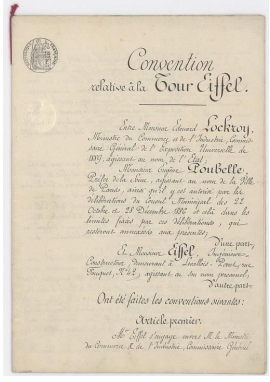 Convention
relative à la Tour Eiffel.
Entre Monsieur Edouard Lockroy,
Ministre du Commerce et de l'Industrie, Commis-
saire Général de l'Exposition Universelle de
1889, agissant au nom de l'Etat,
Monsieur Eugène Poubelle,
Préfet de la Seine, agissant au nom de la Ville
de Paris, ainsi qu'il y est autorisé par les
délibérations du Conseil Municipal des 22
Octobre et 28 Décembre 1886 et cela dans les
limites fixées par ces délibérations, qui
resteront annexées aux présentes;
D'une part,
Et Monsieur Eiffel, Ingénieur
Constructeur, demeurant à Levallois-Perret, rue
Fouquet, N° 42, agissant en son nom personnel,
D'autre part,
Ont été faites les conventions suivantes:
Article premier.
Mr Eiffel s'engage envers M. le Ministre
du Commerce & de l'Industrie, Commissaire Général